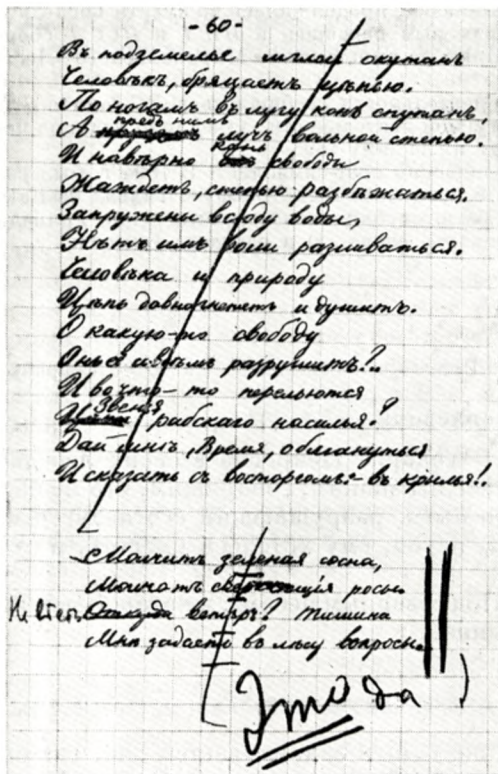 - 60 -
Въ подземелье мглой окутанъ
Человѣкъ, бряцаетъ цѣпью.
По ногамъ въ лугу конь спутанъ,
А предъ нимъ лучъ вольной степью.
И навѣрно конь свободы
Жаждетъ, степью разбѣжаться.
Запружены всюду воды,
Нѣтъ имъ воли разливаться.
Человѣка и природу
Цѣпь давно гнететъ и душитъ.
О какую-то свободу
Онъ ее разрушитъ?..
И во что-то перельются
Звенья рабскаго насилья?
Дай мнѣ, Время, обмануться
И сказать съ восторгомъ:- въ крылья!.
Молчитъ зеленая сосна,
Молчатъ росы.
вѣтеръ? Тишина
Мнѣ задаетъ въ лѣсу вопросы.
Это да